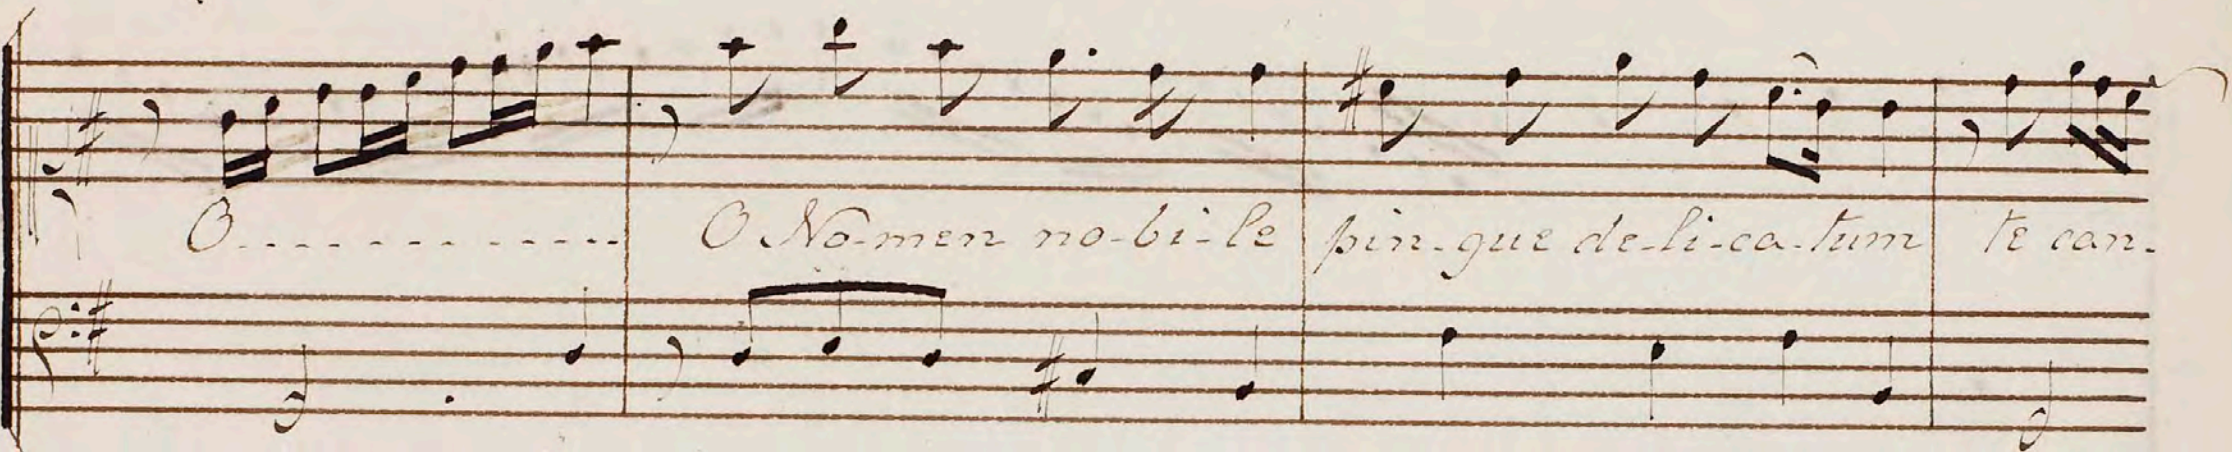 O............. O No-men no-bi-le pin-gue de-li-ca-tum te can-